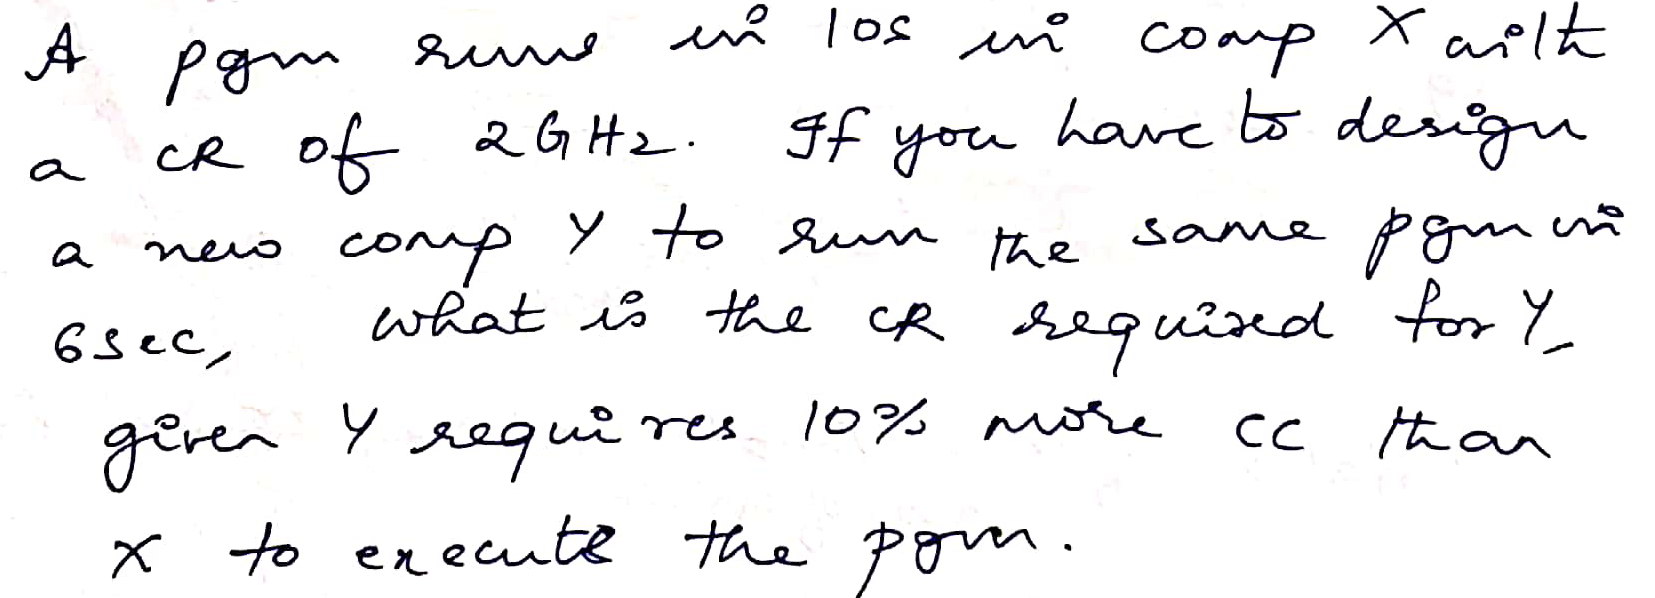 A pgm runs in 10s in comp X with
a CR of 2GHz. If you have to design
a new comp Y to run the same pgm in
6sec, what is the CR required for Y,
given Y requires 10% more CC than
X to execute the pgm.